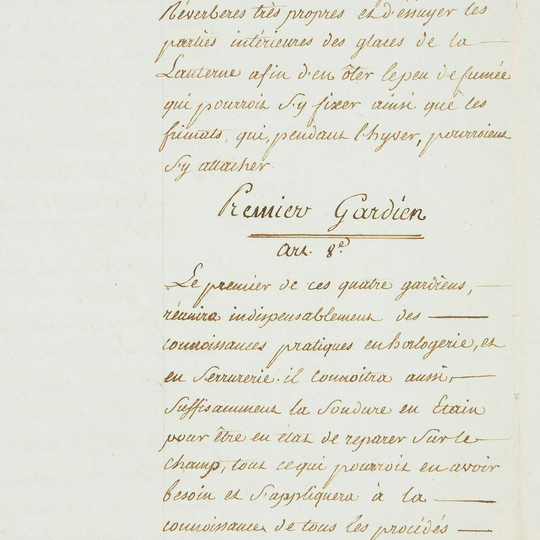 Réverberes très propres et d'essuyer les
parties intérieures des glaces de la
Lanterne afin d'en ôter le peu de fumée
qui pourroit s'y fixer ainsi que les
frimats, qui, pendant l'hyver, pourroient
s'y attacher
Premier Gardien
Art. 8e
Le premier de ces quatre gardiens,
réunira indispensablement des
connoissances pratiques en horlogerie, et
en Serrurerie. il connoitra aussi,
Suffisamment la Soudure en Etain
pour être en état de reparer Sur le
champ, tout ce qui pourroit en avoir
besoin et s'appliquera à la
connoissance de tous les procédés